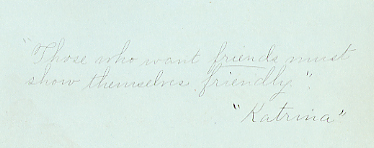 "Those who want friends must
show themselves friendly".
"Katrina"